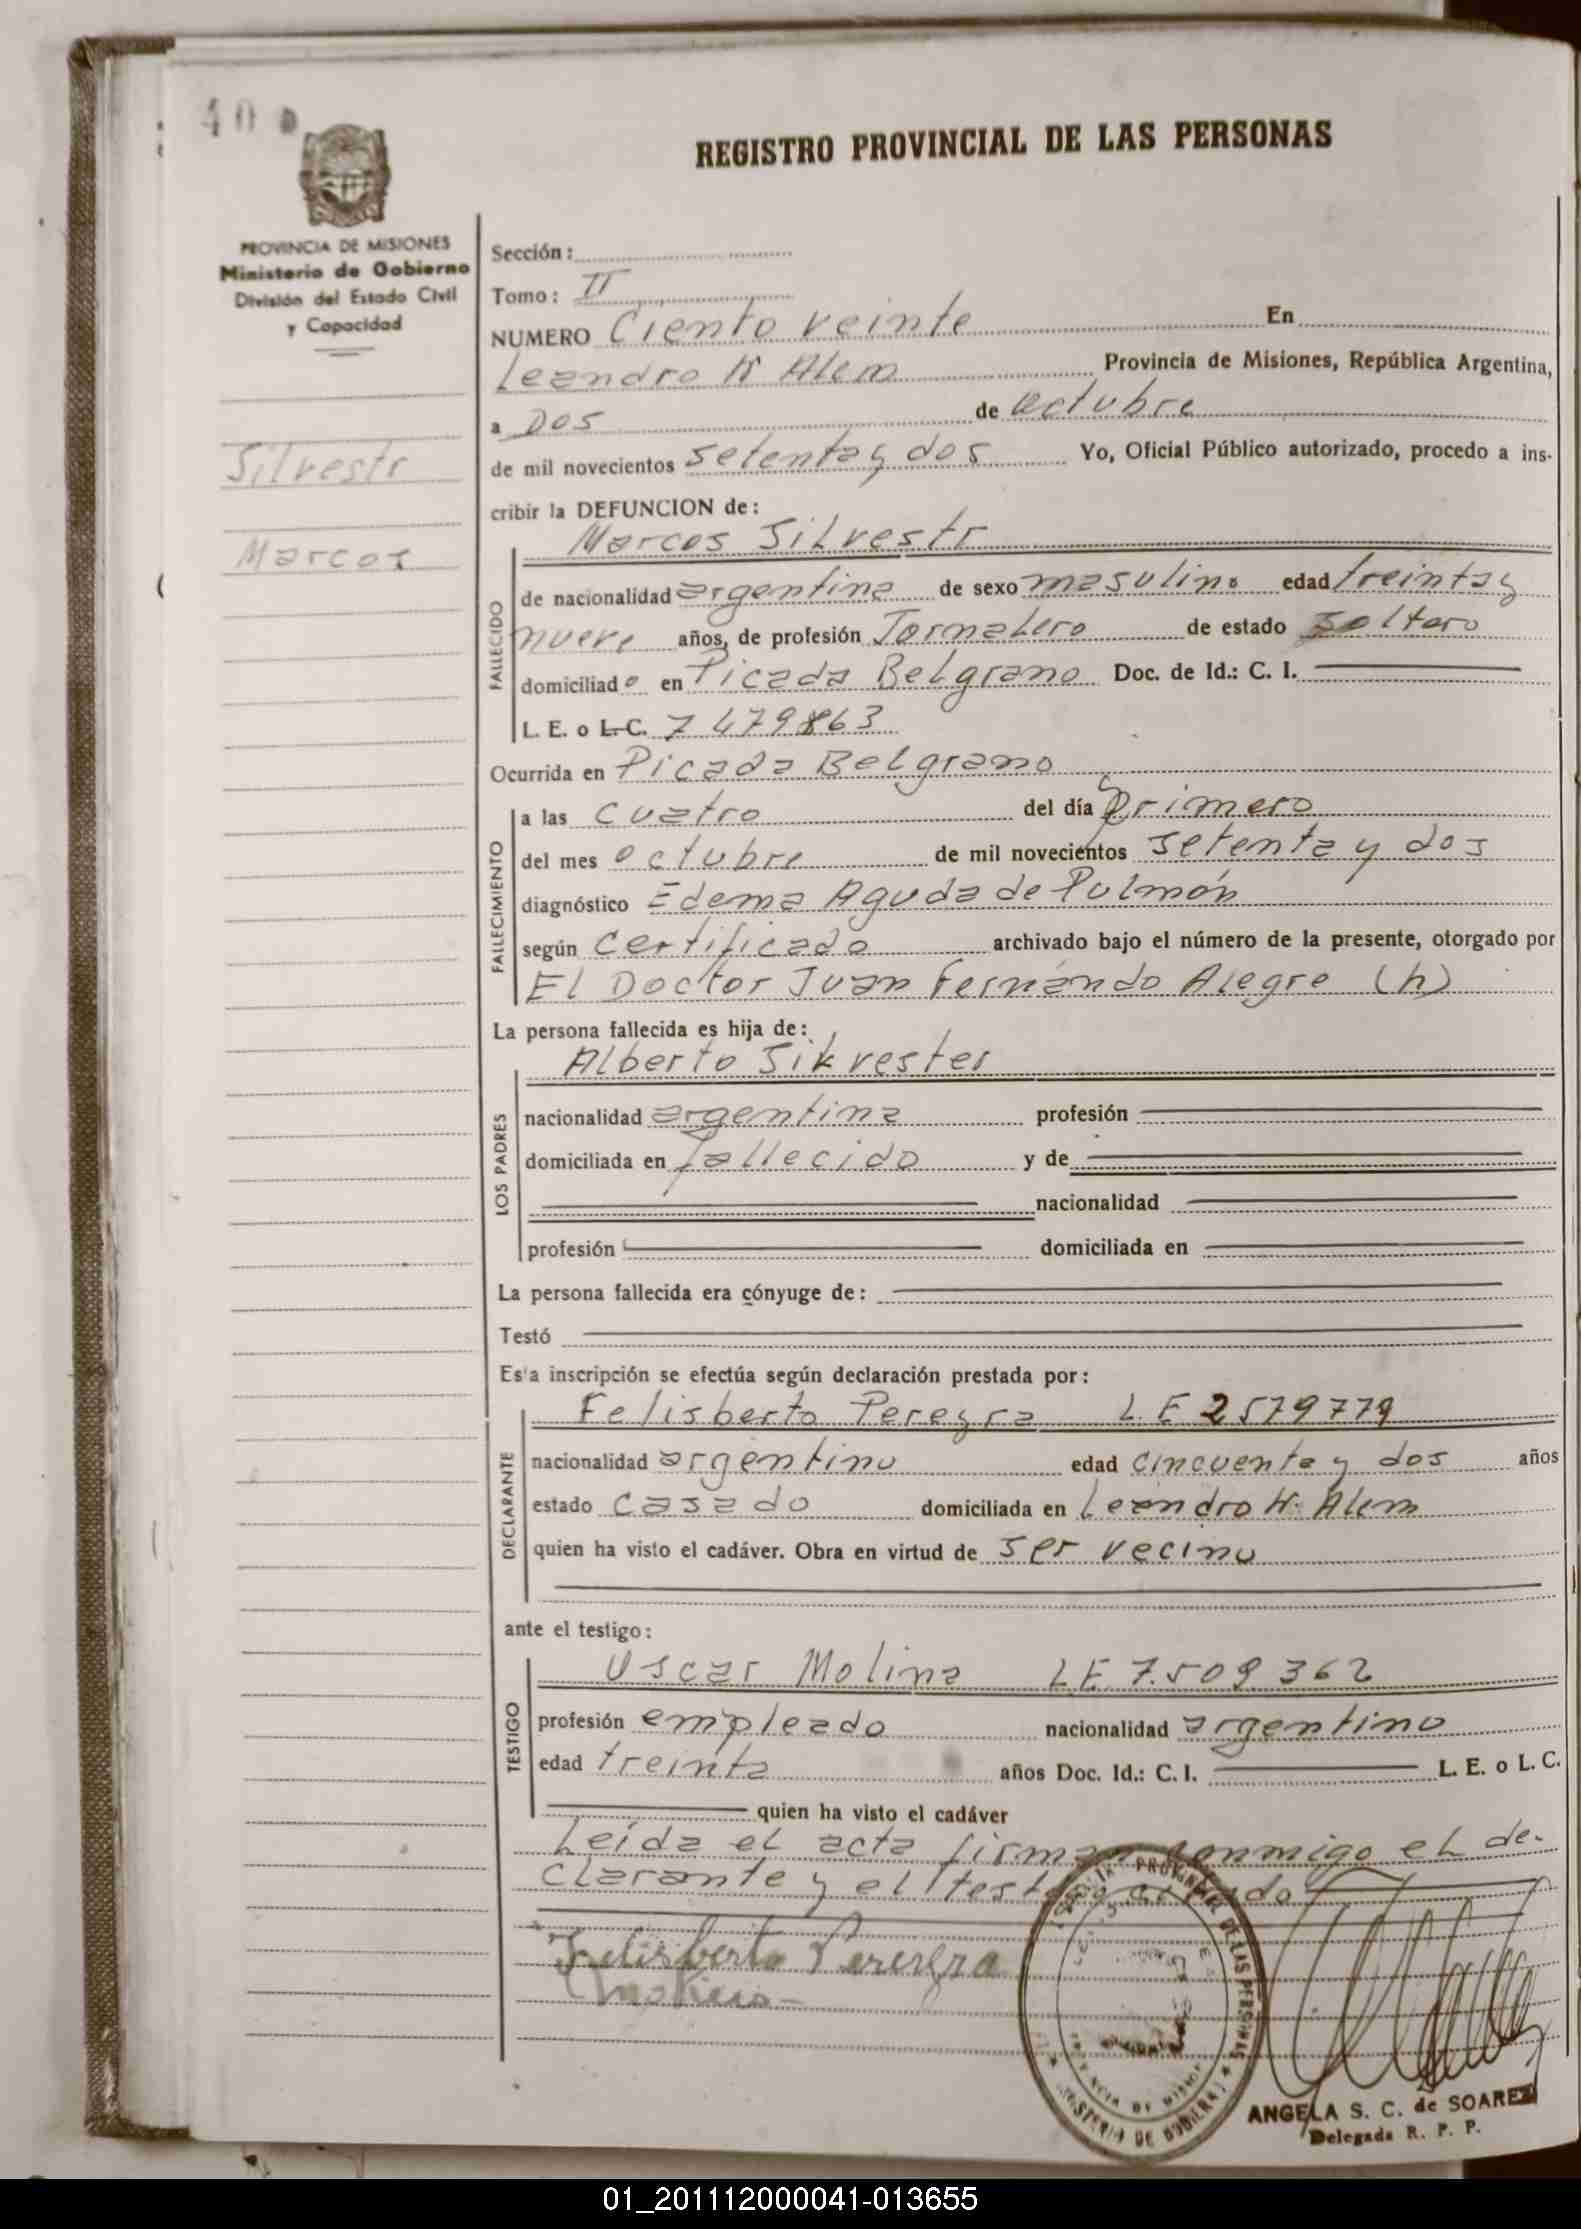 40
REGISTRO PROVINCIAL DE LAS PERSONAS
PROVINCIA DE MISIONES
Ministerio de Gobierno
División del Estado Civil
y Capacidad
Silvestr
Marcos
Sección:
Tomo: II
NUMERO Ciento veinte En
Leandro N Alem Provincia de Misiones, República Argentina,
a Dos de octubre
de mil novecientos setenta y dos Yo, Oficial Público autorizado, procedo a ins-
cribir la DEFUNCION de:
Marcos Silvestr
FALLECIDO
de nacionalidad argentina de sexo masulino edad treinta y
nueve años, de profesión Jornalero de estado soltero
domiciliado en Picada Belgrano Doc. de Id.: C. I.
L. E. o L.C. 7 479863
Ocurrida en Picada Belgrano
FALLECIMIENTO
a las cuatro del día primero
del mes octubre de mil novecientos setenta y dos
diagnóstico Edema Aguda de Pulmón
según certificado archivado bajo el número de la presente, otorgado por
El Doctor Juan Fernando Alegre (h)
La persona fallecida es hija de:
Alberto Silvester
LOS PADRES
nacionalidad argentina profesión
domiciliada en fallecido y de
nacionalidad
profesión domiciliada en
La persona fallecida era cónyuge de:
Testó
Esta inscripción se efectúa según declaración prestada por:
Felisberto Pereyra L.E 2579779
DECLARANTE
nacionalidad argentino edad cincuenta y dos años
estado casado domiciliada en Leandro N. Alem
quien ha visto el cadáver. Obra en virtud de ser vecino
ante el testigo:
Oscar Molina LE 7.509362
TESTIGO
profesión empleado nacionalidad argentino
edad treinta años Doc. Id.: C. I. L. E. o L. C.
quien ha visto el cadáver
Leída el acta firman conmigo el de-
clarante y el testigo citado
Felisberto Pereyra
PROVINCIAL DE LAS PERSONAS
MINISTERIO DE GOBIERNO
PROVINCIA DE MISIONES
ANGELA S. C. de SOAREZ
Delegada R. P. P.
01_201112000041-013655